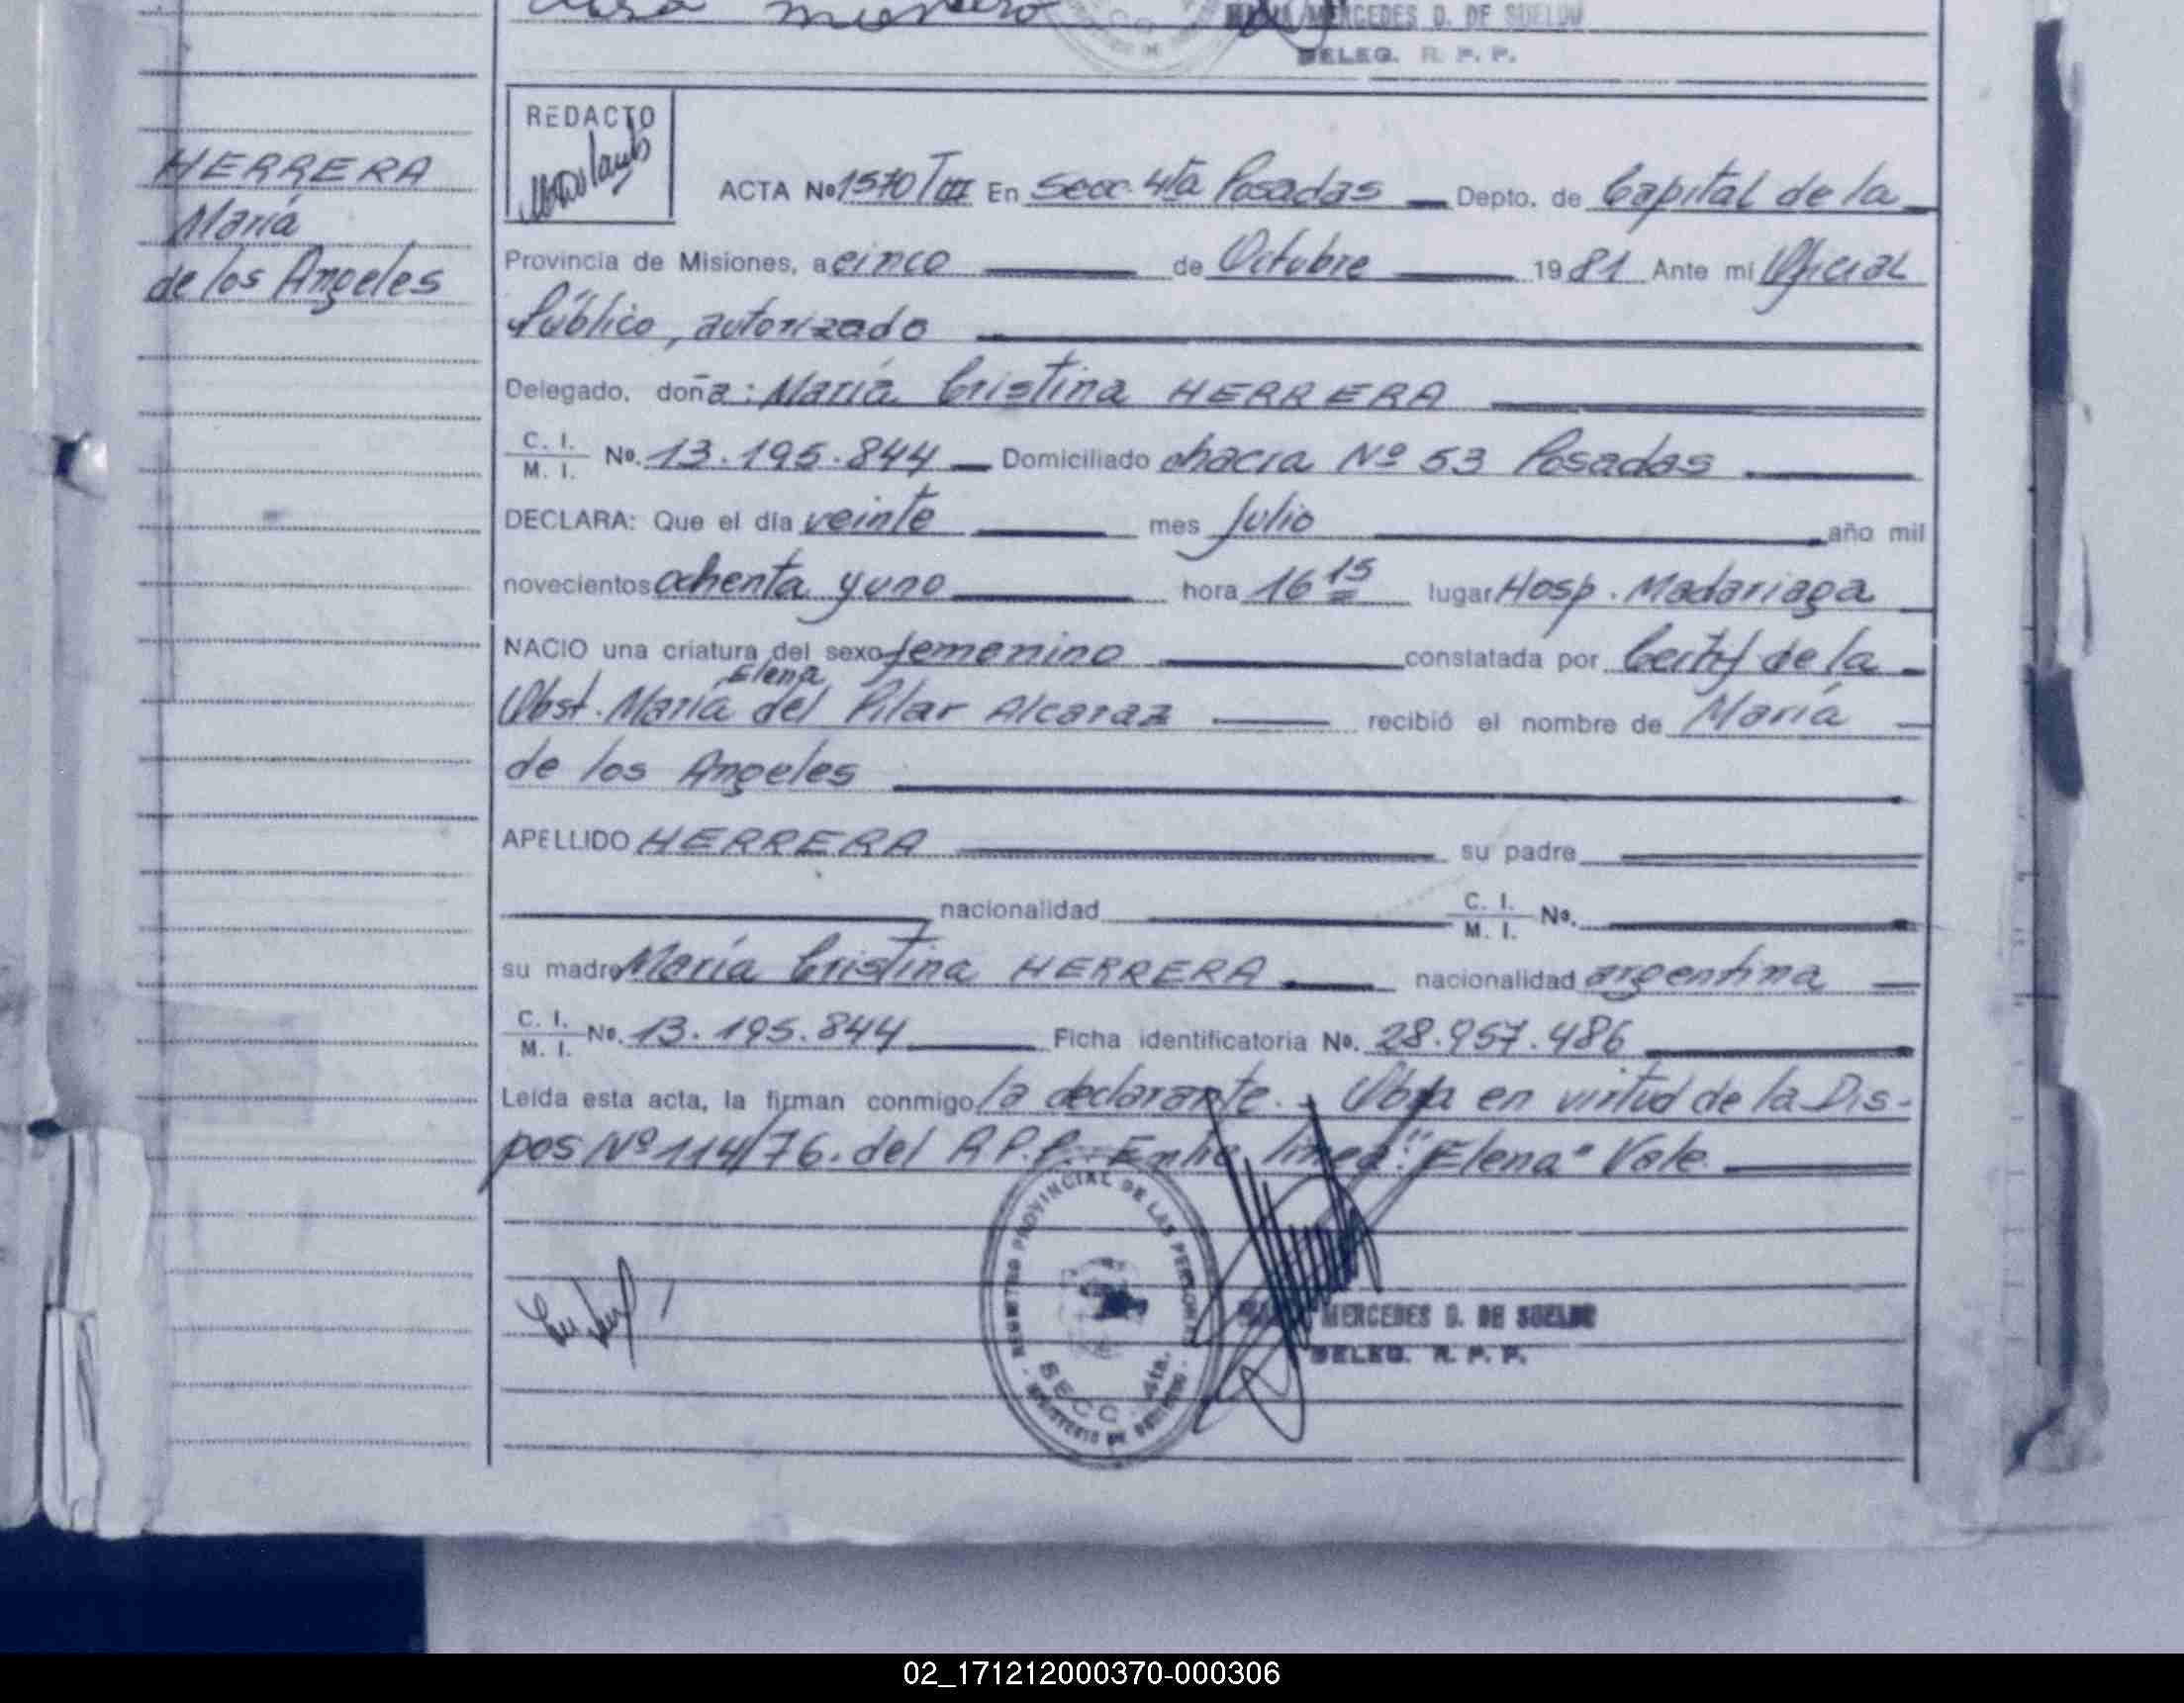 MERCEDES D. DE SUELDO
DELEG. R. P. P.
HERRERA
María
de los Angeles
REDACTO
ACTA No 1570 TIII En Secc. 4ta Posadas Depto. de Capital de la
Provincia de Misiones, a cinco de Octubre 1981 Ante mi Oficial
Público, autorizado
Delegado, doña: María Cristina HERRERA
C. I.
M. I. No. 13.195.844 Domiciliado chacra Nº 53 Posadas
DECLARA: Que el día veinte mes Julio año mil
novecientos ochenta y uno hora 16 15 lugar Hosp. Madariaga
NACIO una criatura del sexo femenino constatada por Certif de la
Elena
Obst. María del Pilar Alcaraz recibió el nombre de María
de los Angeles
APELLIDO HERRERA su padre
nacionalidad C. I.
M. I. No.
su madre María Cristina HERRERA nacionalidad argentina
C. I.
M. I. No. 13.195.844 Ficha identificatoria No. 28.957.486
Leída esta acta, la firman conmigo la declarante. Obra en virtud de la Dis-
pos Nº 114/76. del R.P.P. Entre línea: "Elena" Vale
REGISTRO PROVINCIAL DE LAS PERSONAS
SECC. 4ta.
MERCEDES D. DE SUELDO
DELEG. R. P. P.
02_171212000370-000306